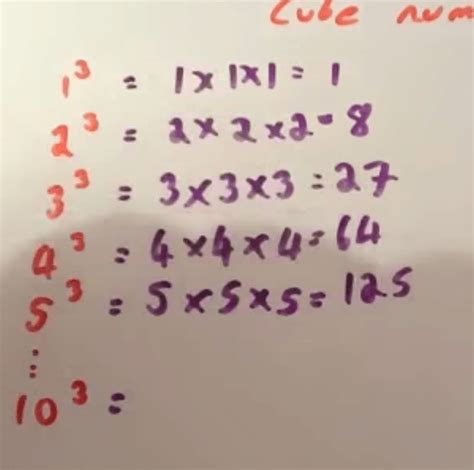 Cube num
1³ = 1×1×1=1
2³ = 2×2×2=8
3³ = 3×3×3=27
4³ = 4×4×4=64
5³ = 5×5×5=125
⋮
10³ =